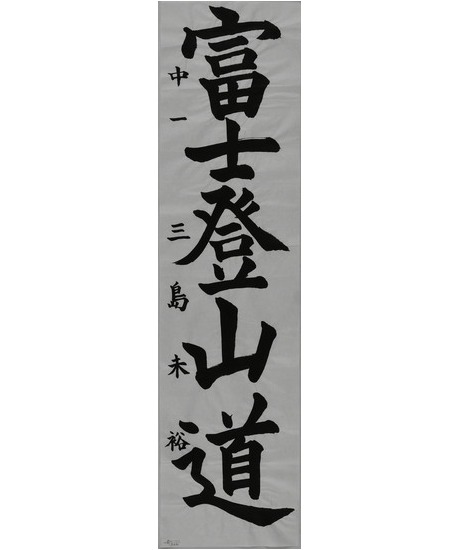 富士登山道
中一 三島未裕